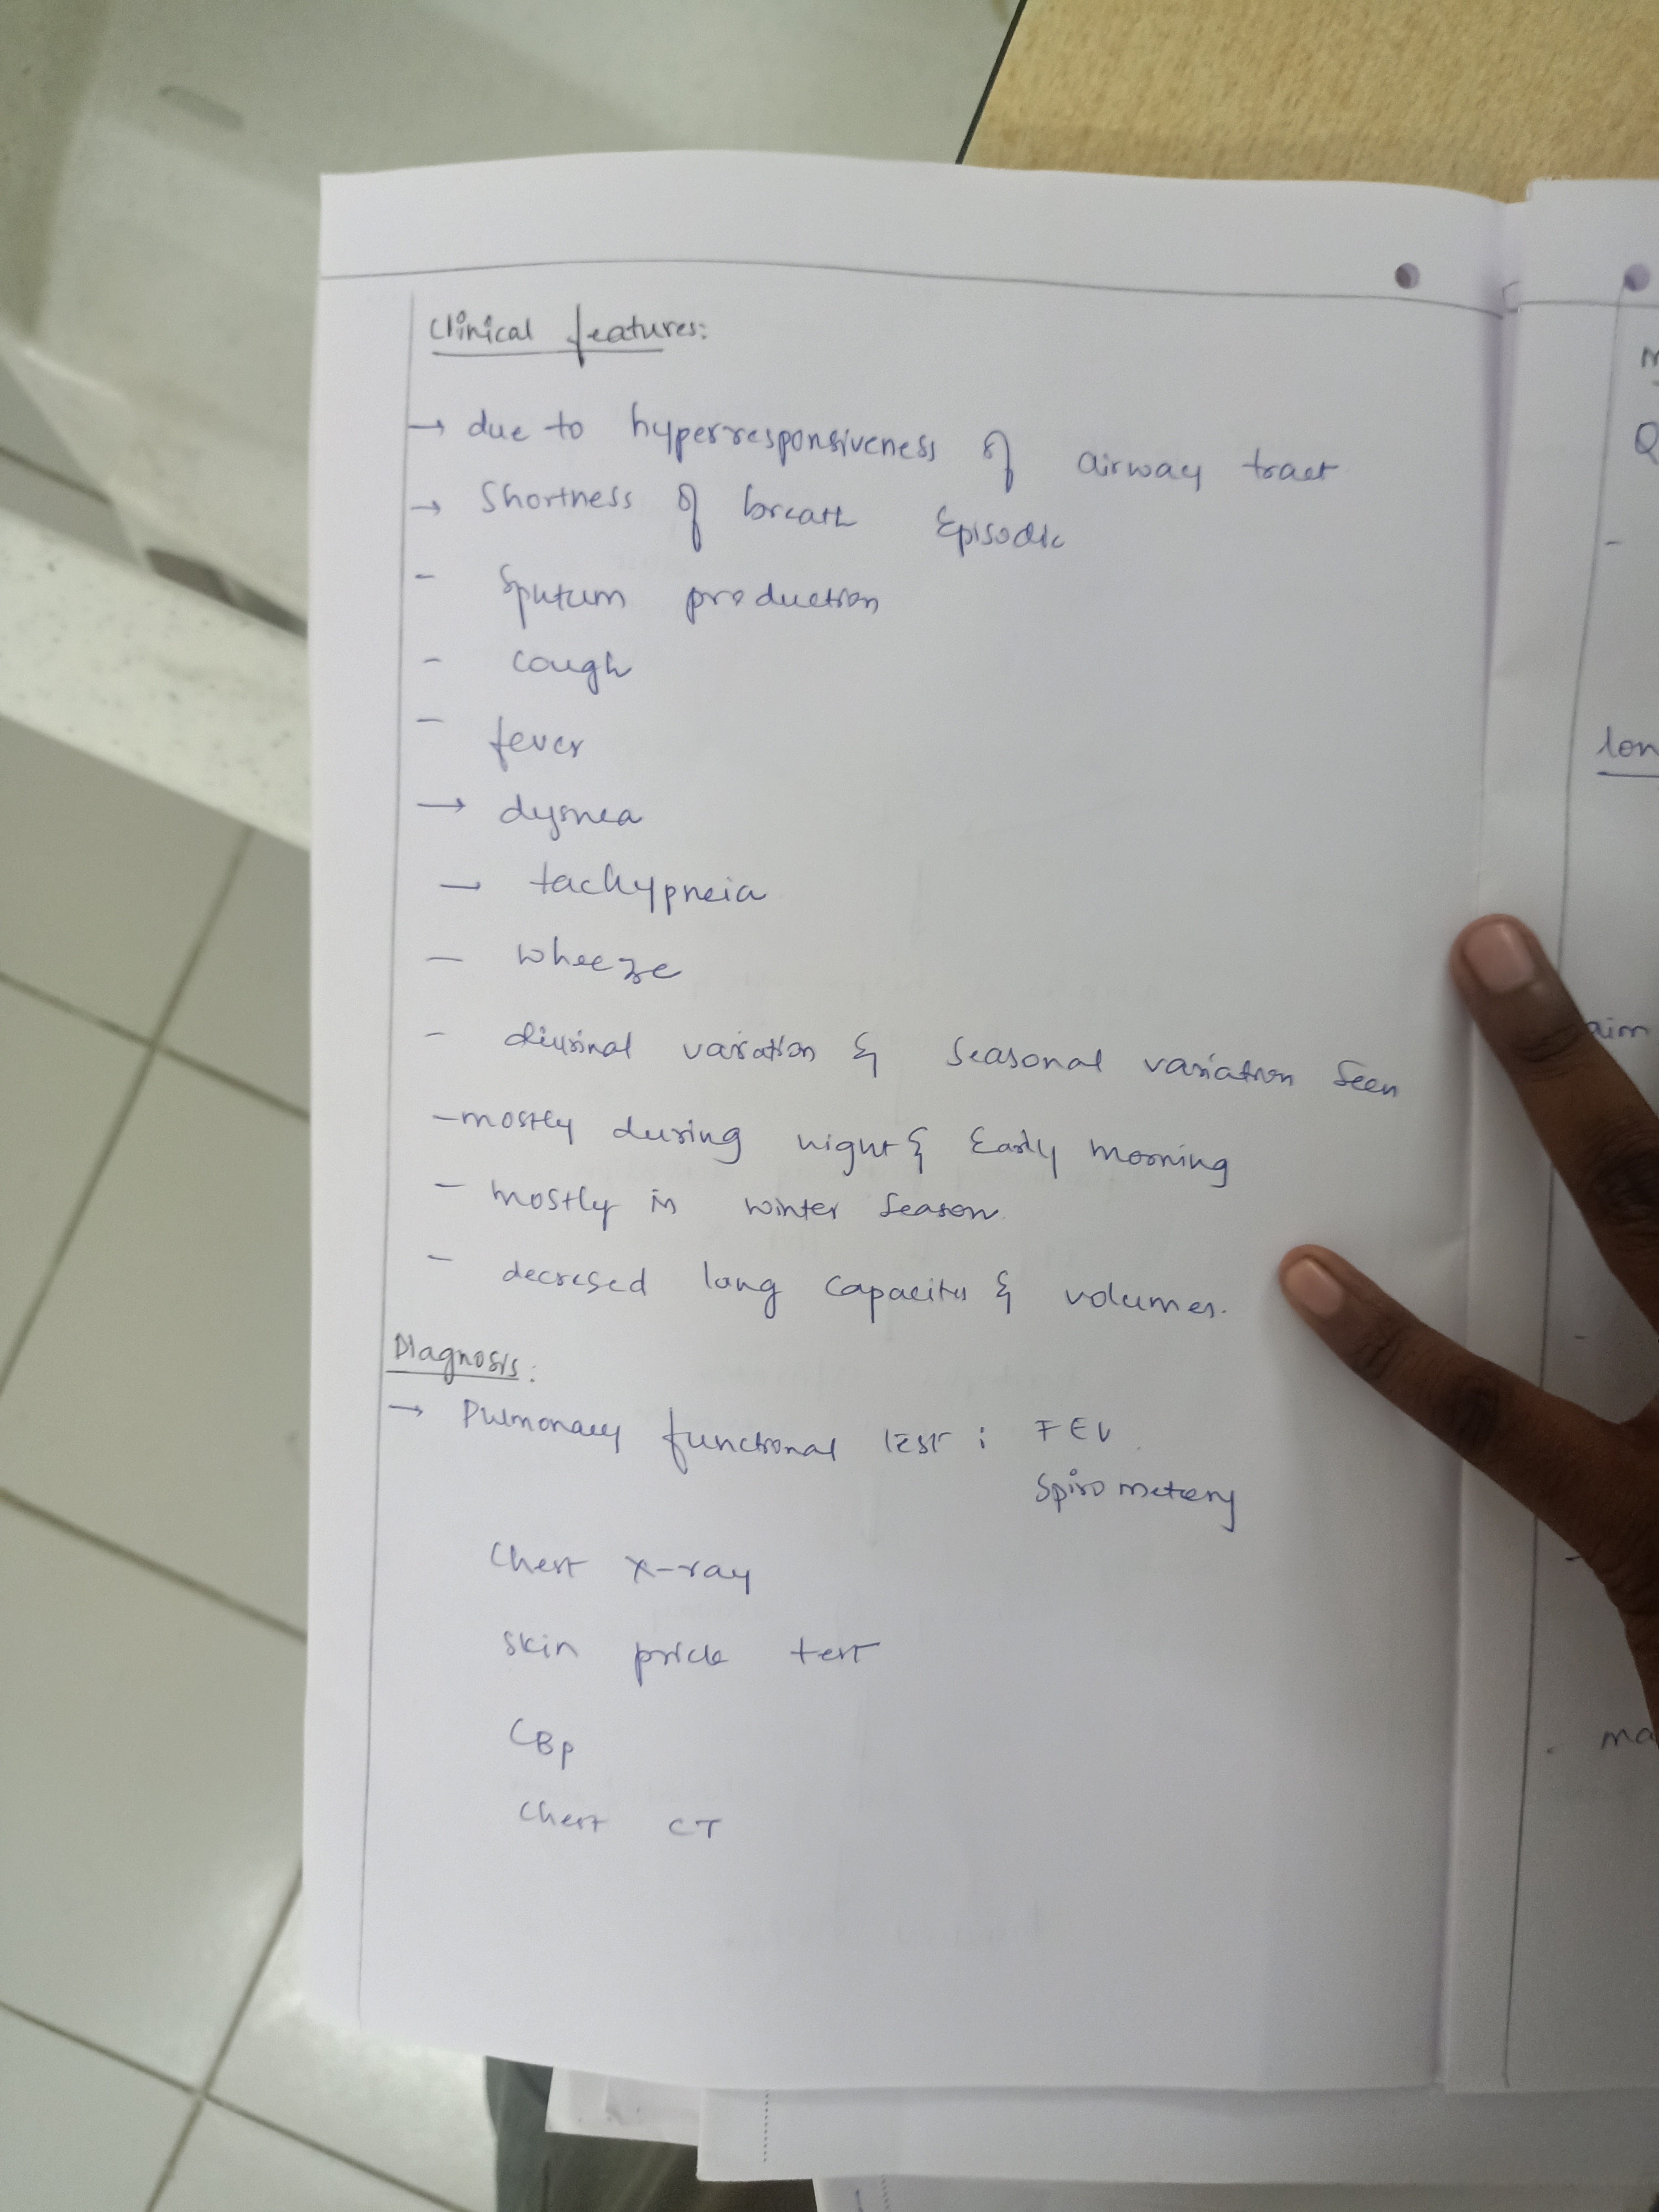 Clinical features:
→ due to hyperresponsiveness of airway tract
→ Shortness of breath Episodic
- Sputum production
- cough
- fever
→ dysnea
→ tachypneia
- wheeze
- diurinal variation & seasonal variation seen
- mostly during night & Early morning
- mostly in winter season.
- decresed lung capacitus & volumes.
Diagnosis:
→ Pulmonary functional test : FEV
Spirometery
Chest x-ray
skin prick test
CBP
Chest CT
Q
lon
aim
ma